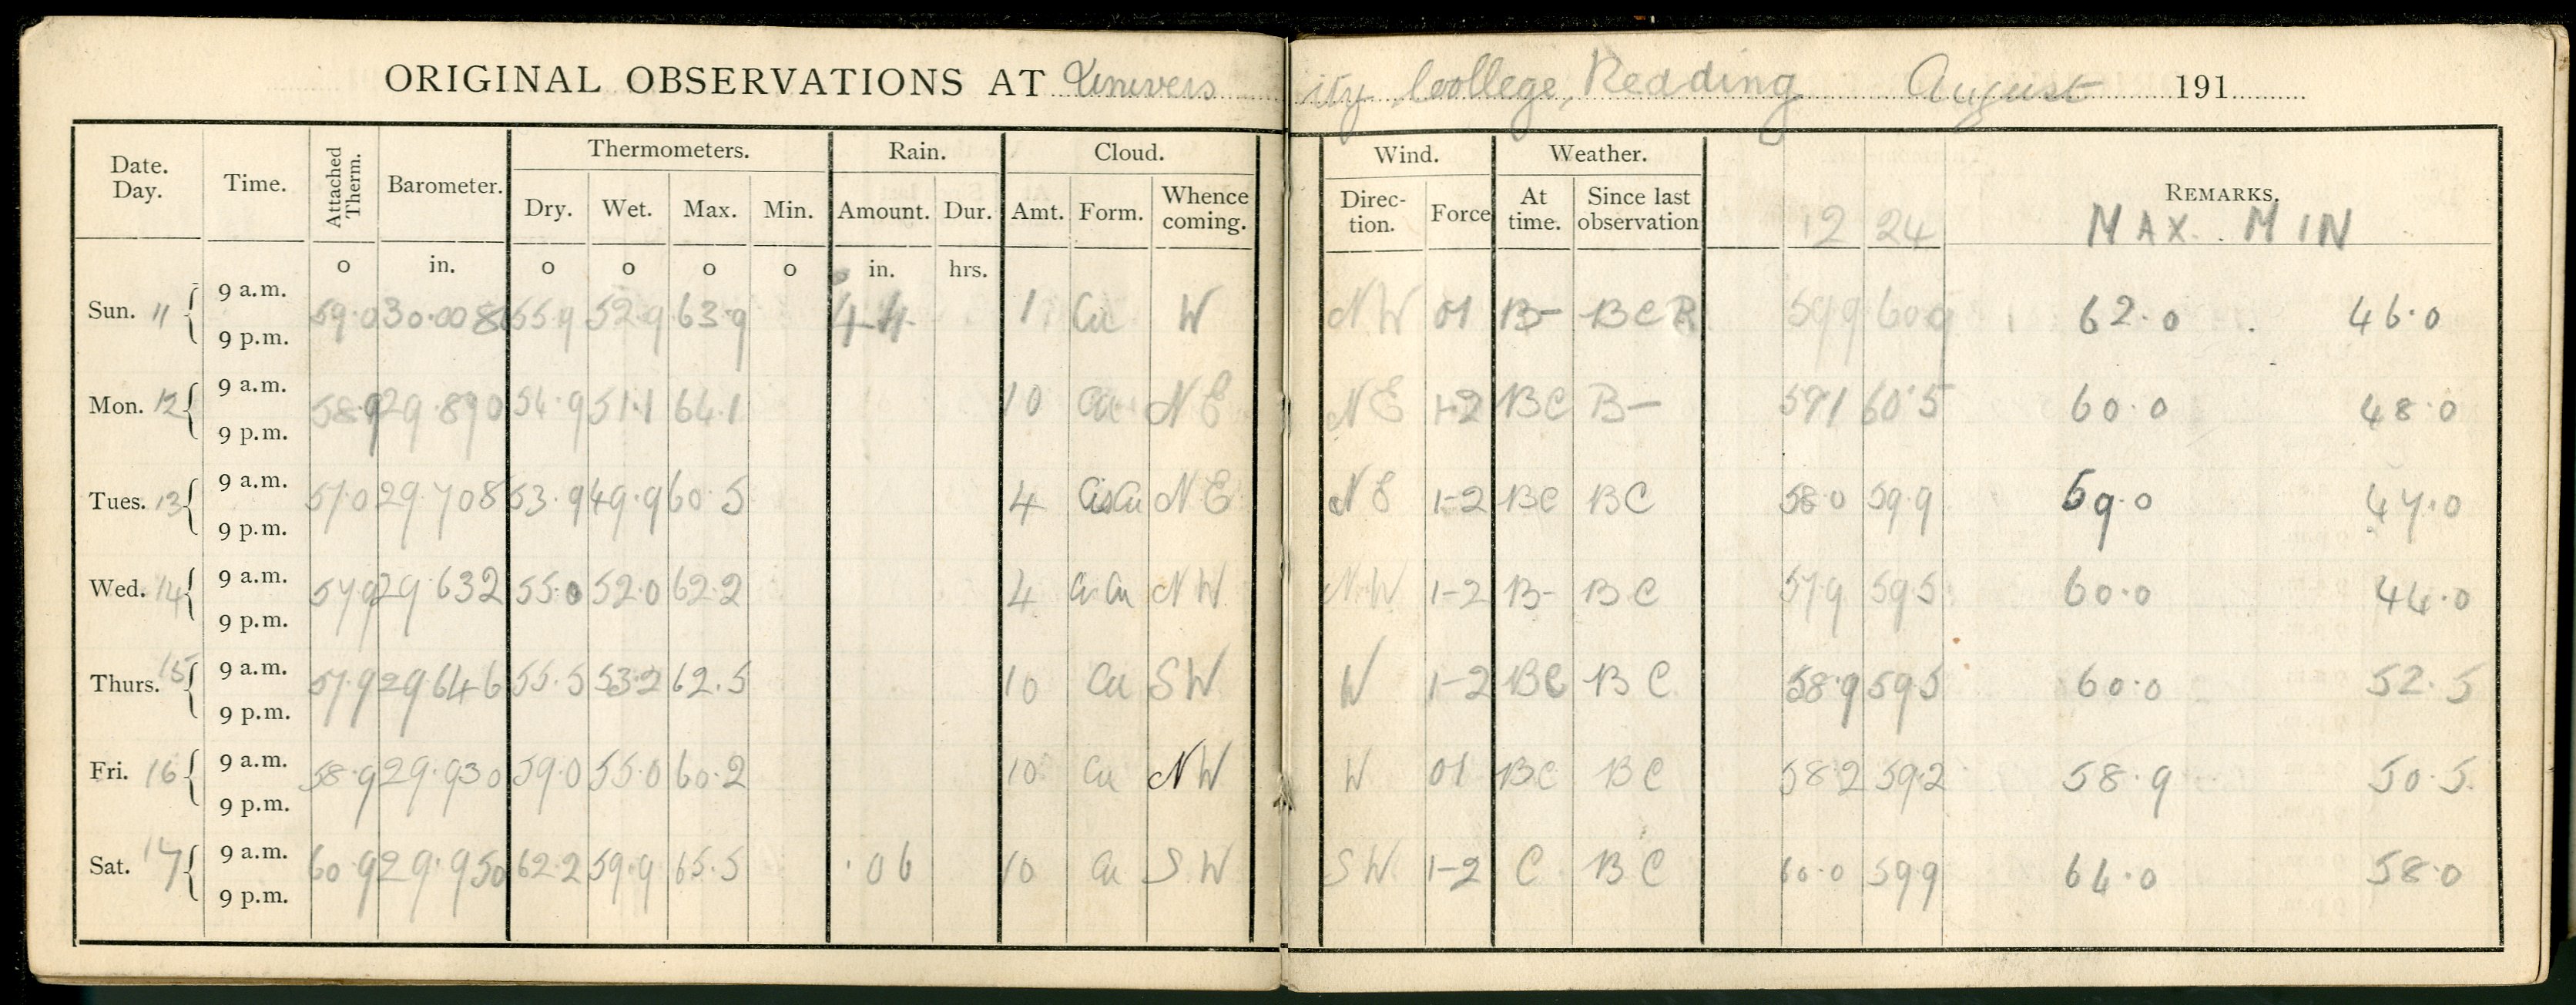 ORIGINAL OBSERVATIONS AT University Coollege, Redding August 191
Date. Day. Time. Attached Therm. Barometer. Thermometers. Rain. Cloud. Wind. Weather. REMARKS.
Dry. Wet. Max. Min. Amount. Dur. Amt. Form. Whence coming. Direc- tion. Force At time. Since last observation 12 24 MAX. MIN
o in. o o o o in. hrs.
Sun. 11 { 9 a.m. 59.0 30.008 55.9 52.9 63.9 44 1 Cu W NW 01 B- BCR 59 9 60 9 62.0 46.0
9 p.m.
Mon. 12 { 9 a.m. 58.9 29 890 54.9 51.1 64.1 10 Cu NE NE 1-2 BC B- 591 60.5 60.0 48.0
9 p.m.
Tues. 13 { 9 a.m. 57.0 29.708 53.9 49.9 60.5 4 CisCu NE NE 1-2 BC BC 58.0 59.9 59.0 47.0
9 p.m.
Wed. 14 { 9 a.m. 57.9 29.632 55.0 52.0 62.2 4 CiCu NW NW 1-2 B- BC 57.9 59.5 60.0 44.0
9 p.m.
Thurs. 15 { 9 a.m. 57.9 29.646 55.5 53.2 62.5 10 Cu SW W 1-2 BC BC 58.9 59.5 60.0 52.5
9 p.m.
Fri. 16 { 9 a.m. 58.9 29.930 59.0 55.0 60.2 10 Cu NW W 01 BC BC 58.2 59.2 58.9 50.5
9 p.m.
Sat. 17 { 9 a.m. 60.9 29.950 62.2 59.9 65.5 .06 10 Cu SW SW 1-2 C BC 60.0 59.9 64.0 58.0
9 p.m.